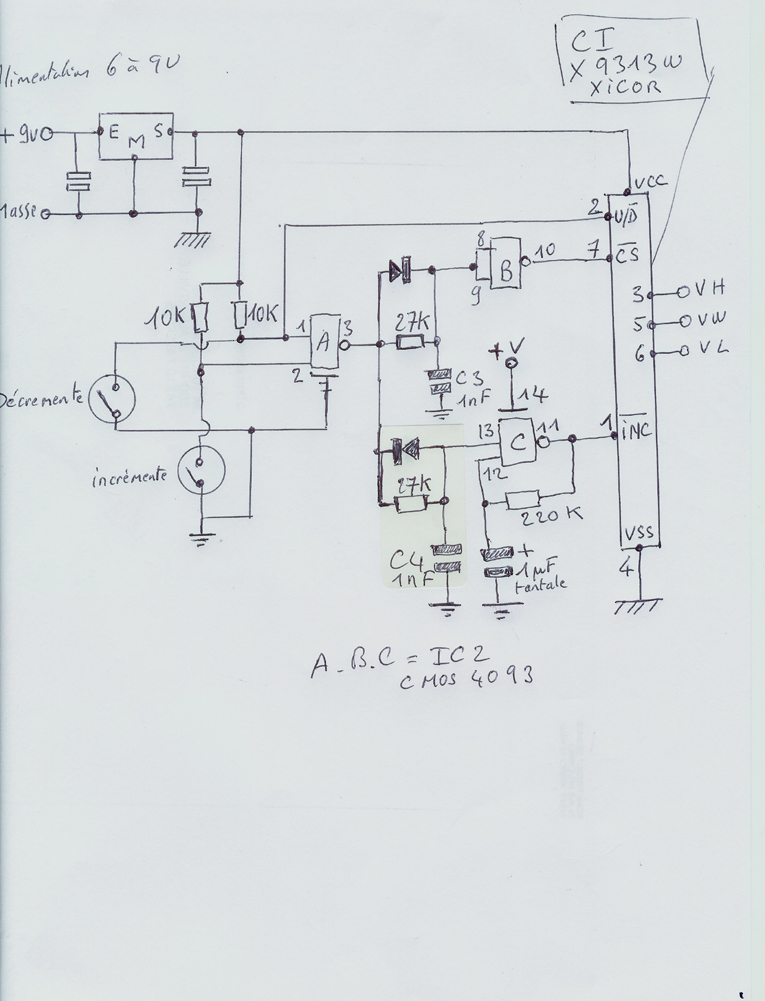 CI
X9313W
XiCOR
Alimentation 6 à 9V
+ 9V
E
M
S
Masse
VCC
2
U/D̅
8
9
B
10
7
C̅S̅
3
VH
5
VW
6
VL
10K
10K
1
A
3
2
27K
C3
1nF
+V
14
Décremente
incrémente
13
C
11
12
1
i̅N̅C̅
27K
220K
C4
1nF
+
1µF
tantale
VSS
4
A - B.C = IC2
CMOS 4093